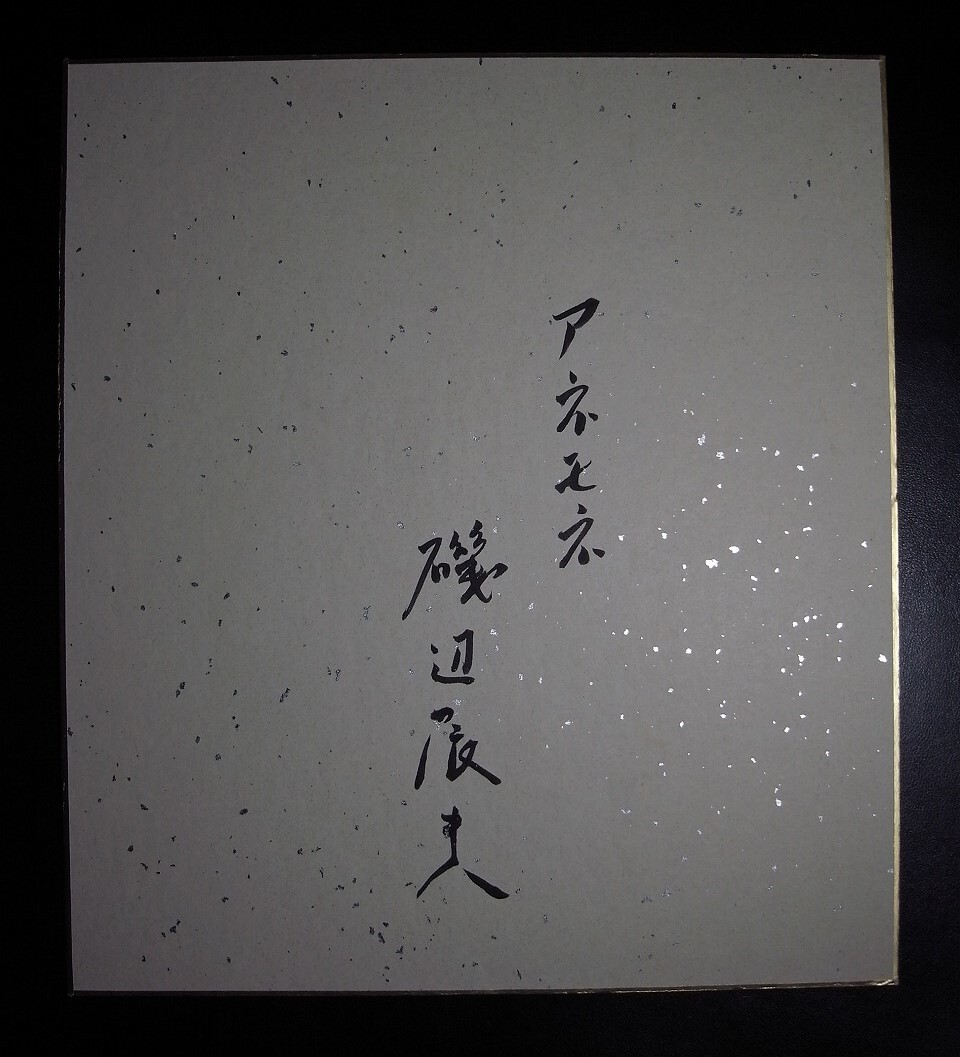 アネモネ
磯辺辰夫